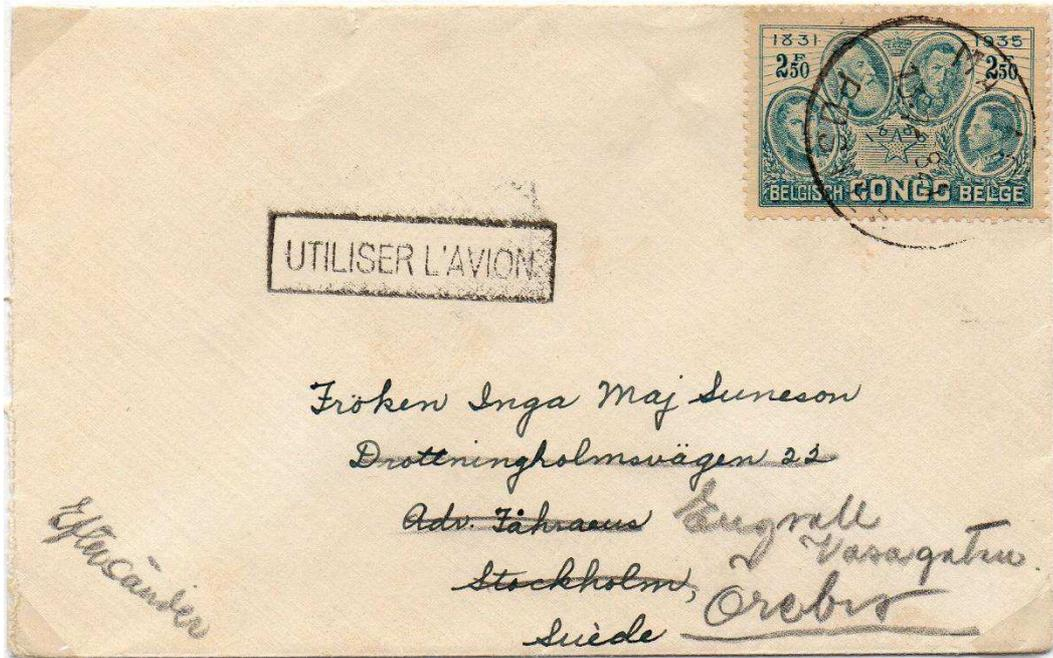 1831 1935
2F50 2F50
BELGISCH CONGO BELGE
UTILISER L'AVION
Fröken Inga Maj Suneson
Drottningholmsvägen 22
Adv. Fåhraeus Engvall
Vasagatan
Stockholm, Örebro
Suède
Eftersänder